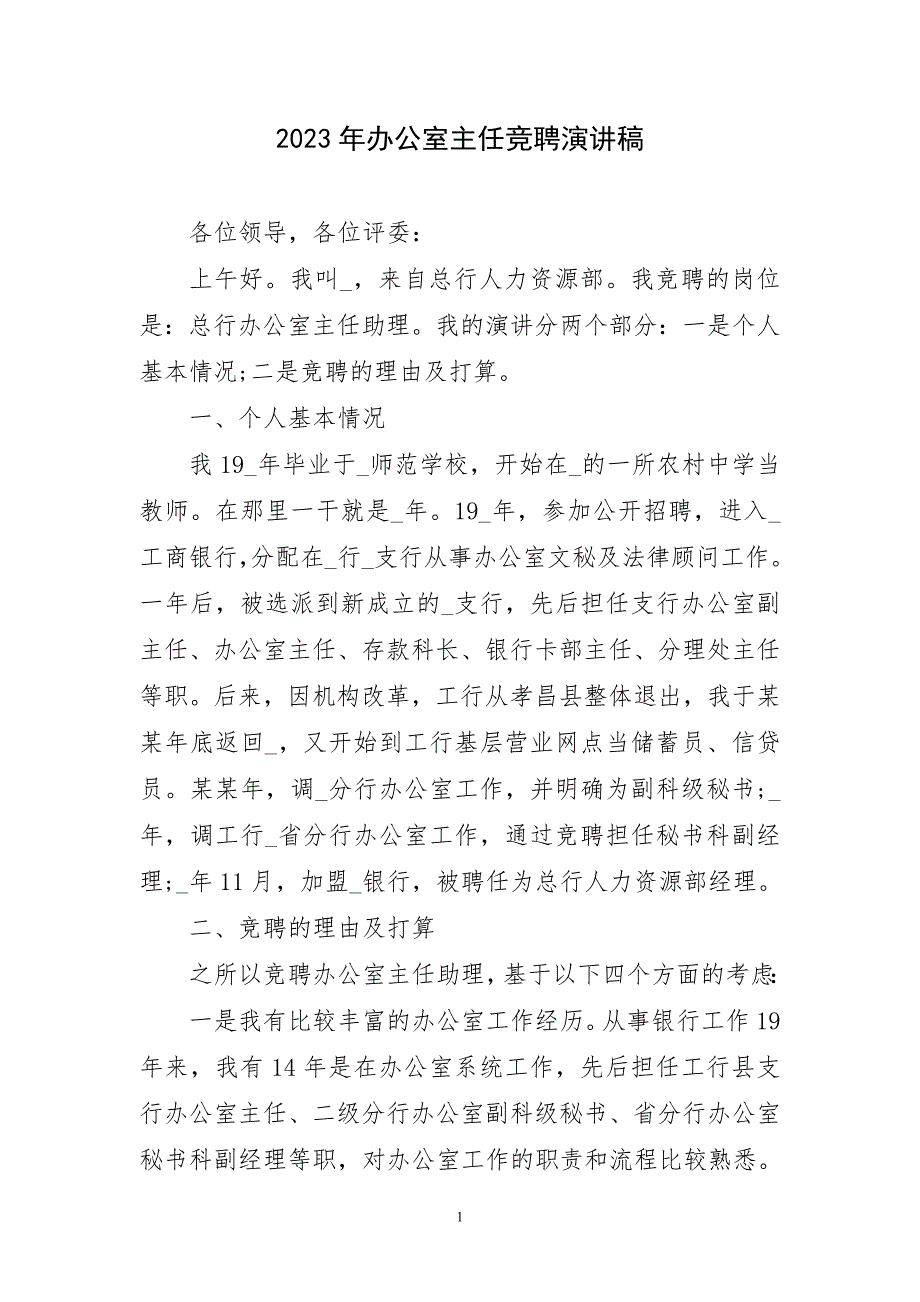 2023 年办公室主任竞聘演讲稿
各位领导，各位评委：
上午好。我叫_，来自总行人力资源部。我竞聘的岗位
是：总行办公室主任助理。我的演讲分两个部分：一是个人
基本情况;二是竞聘的理由及打算。
一、个人基本情况
我 19_年毕业于_师范学校，开始在_的一所农村中学当
教师。在那里一干就是_年。19_年，参加公开招聘，进入_
工商银行，分配在_行_支行从事办公室文秘及法律顾问工作。
一年后，被选派到新成立的_支行，先后担任支行办公室副
主任、办公室主任、存款科长、银行卡部主任、分理处主任
等职。后来，因机构改革，工行从孝昌县整体退出，我于某
某年底返回_，又开始到工行基层营业网点当储蓄员、信贷
员。某某年，调_分行办公室工作，并明确为副科级秘书;_
年，调工行_省分行办公室工作，通过竞聘担任秘书科副经
理;_年 11 月，加盟_银行，被聘任为总行人力资源部经理。
二、竞聘的理由及打算
之所以竞聘办公室主任助理，基于以下四个方面的考虑：
一是我有比较丰富的办公室工作经历。从事银行工作 19
年来，我有 14 年是在办公室系统工作，先后担任工行县支
行办公室主任、二级分行办公室副科级秘书、省分行办公室
秘书科副经理等职，对办公室工作的职责和流程比较熟悉。
1